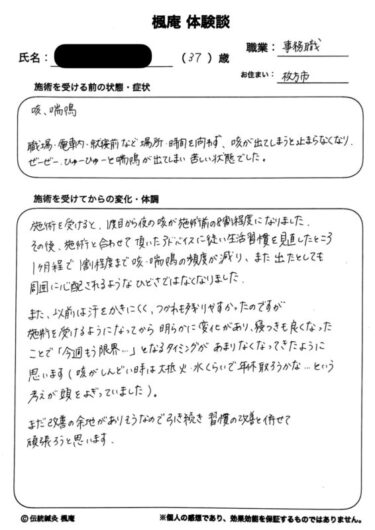 楓庵 体験談
氏名： （37）歳
職業： 事務職
お住まい： 枚方市
施術を受ける前の状態・症状
咳、喘鳴
職場・電車内・就寝前など場所・時間を問わず、咳が出てしまうと止まらなくなり、
ぜーぜー、ひゅーひゅーと喘鳴が出てしまい苦しい状態でした。
施術を受けてからの変化・体調
施術を受けると、1度目から夜の咳が施術前の8割程度になりました。
その後、施術と合わせて頂いたアドバイスに従い生活習慣を見直したところ
1ヶ月程で1割程度まで咳・喘鳴の頻度が減り、また出たとしても
周囲に心配されるようなひどさではなくなりました。
また、以前は汗をかきにくく、つかれも残りやすかったのですが
施術を受けるようになってから明らかに変化があり、寝つきも良くなった
ことで「今週もう限界…」となるタイミングがあまりなくなってきたように
思います（咳がしんどい時は大抵火・水くらいで年休取ろうかな…という
考えが頭をよぎっていました）。
まだ改善の余地がありそうなので引き続き習慣の改善と併せて
頑張ろうと思います。
©伝統鍼灸 楓庵
※個人の感想であり、効果効能を保証するものではありません。